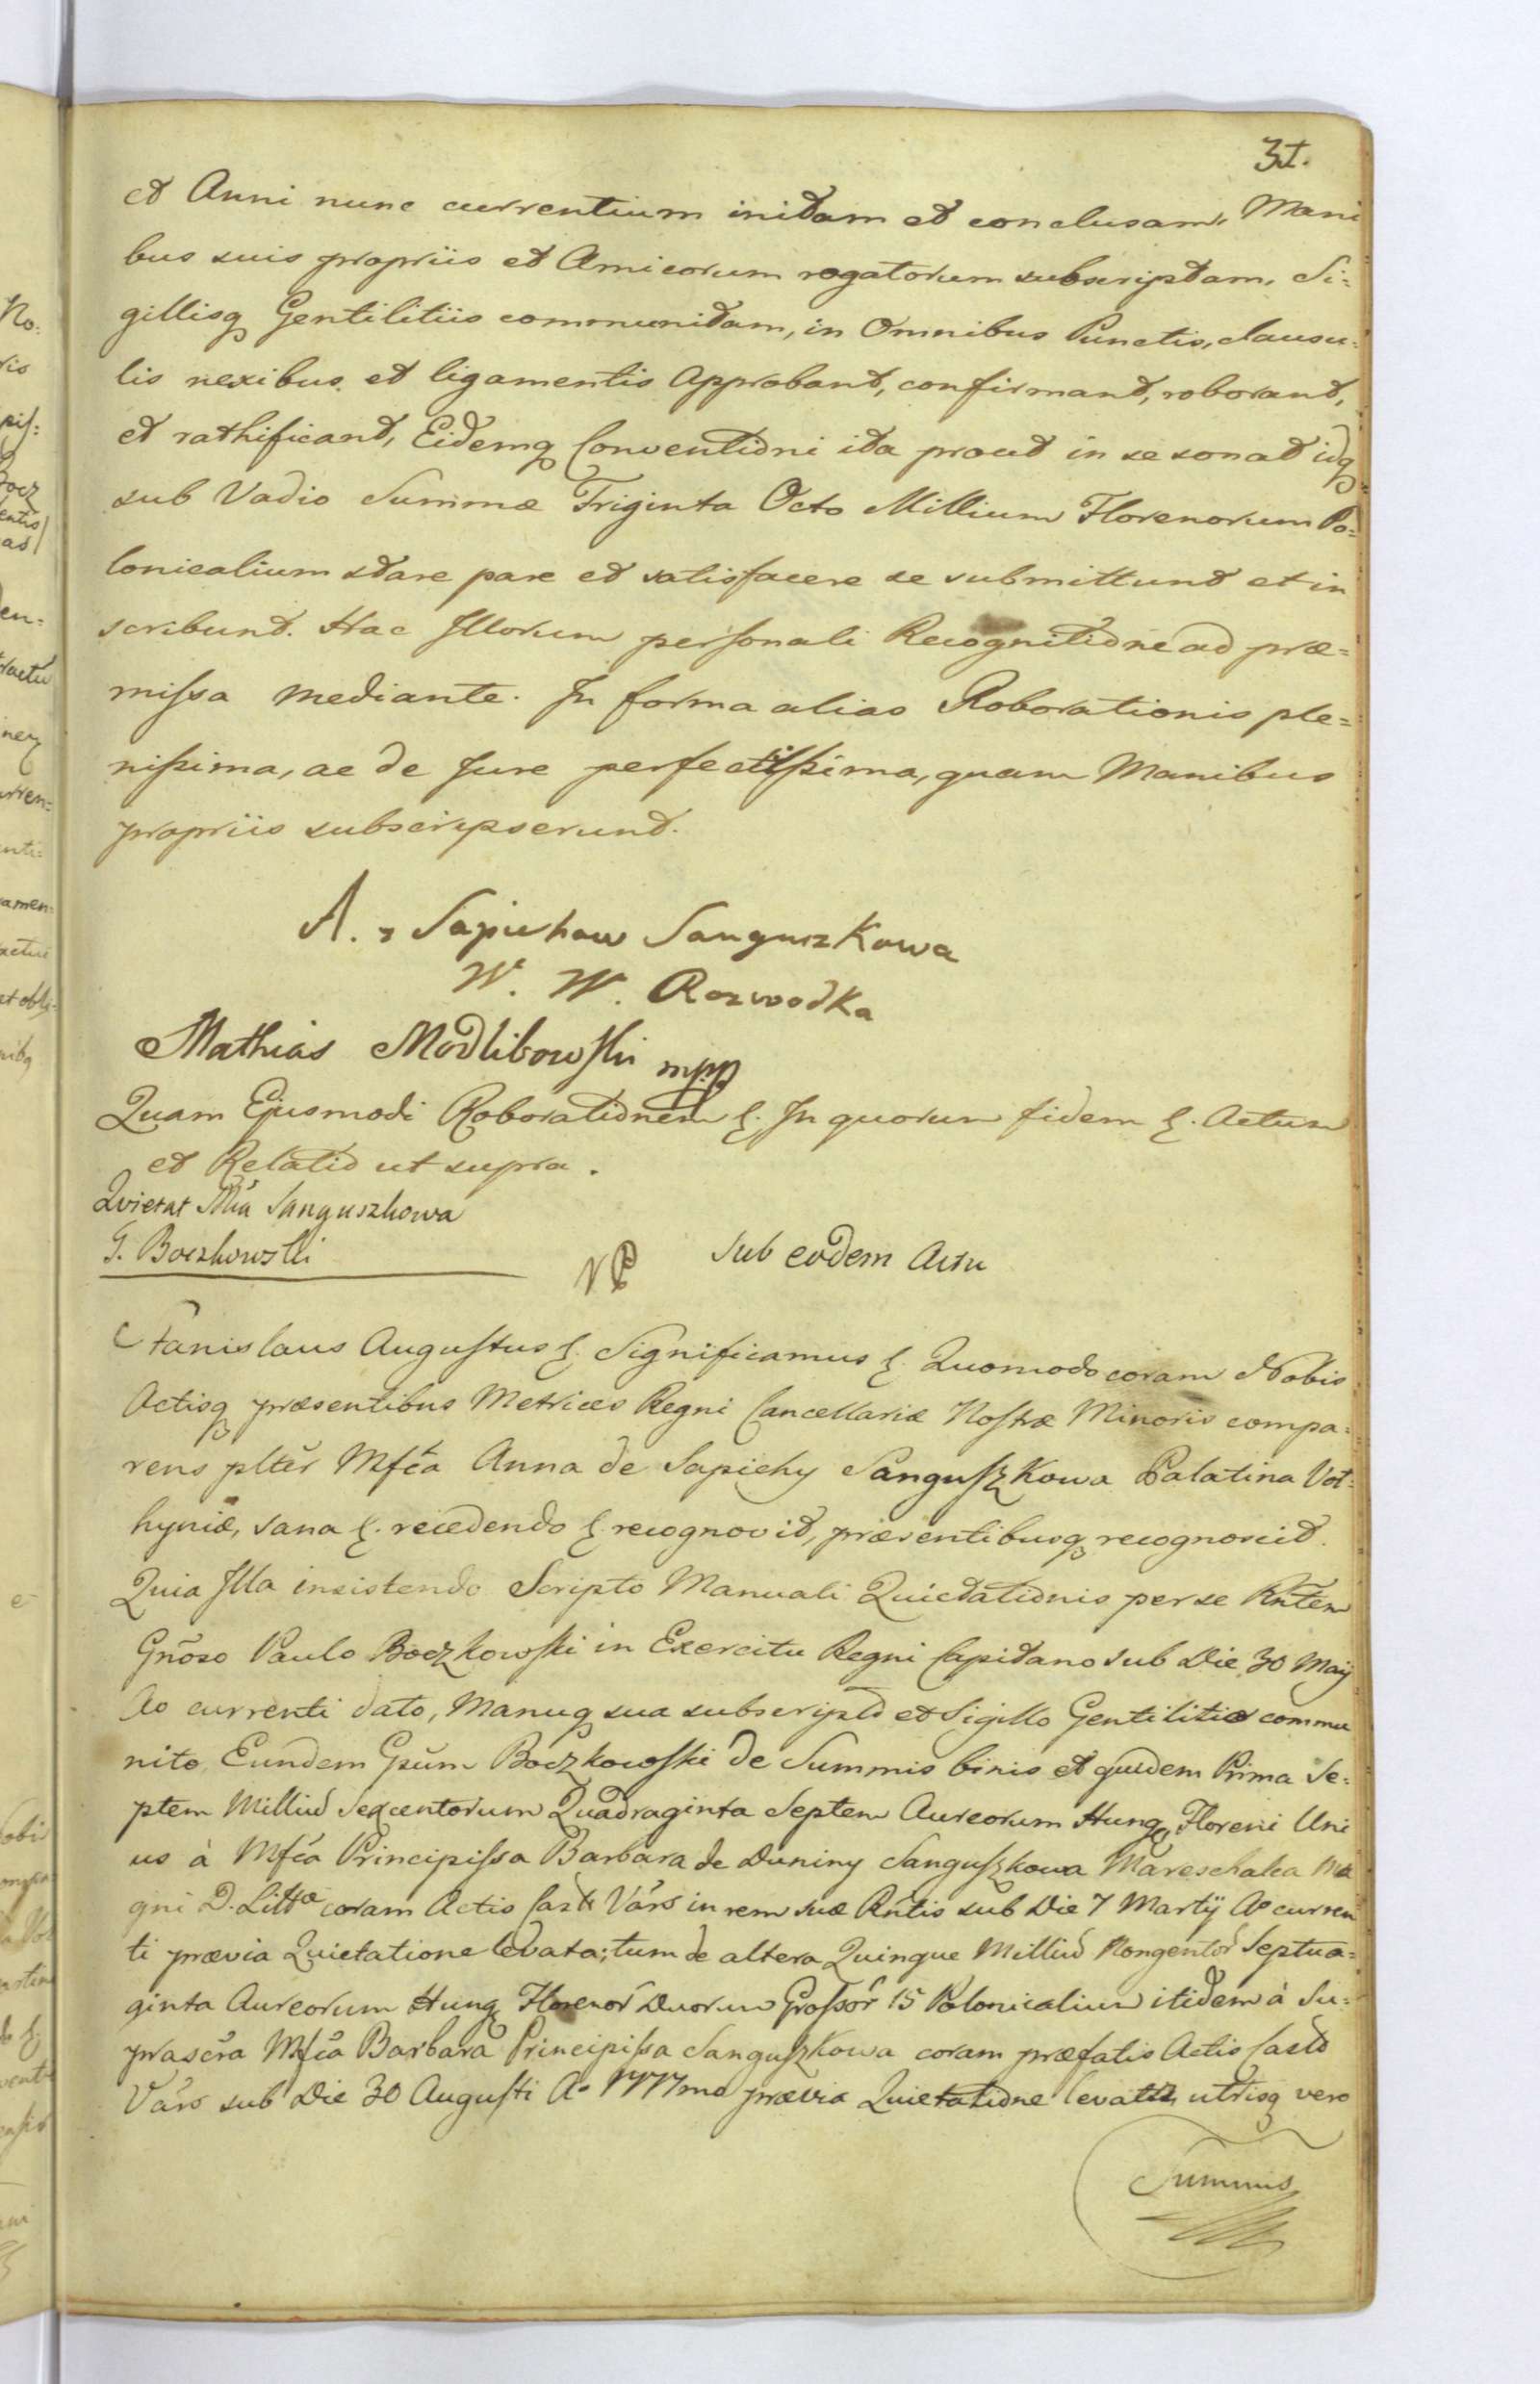 31.
et Anni nunc currentium initam et conclusam, Mani
bus suis propriis et Amicorum rogatorum subscriptam, Si=
gillisq Gentilitiis communitam, in Omnibus Punctis, clausu=
lis nexibus et ligamentis Approbant, confirmant, roborant,
et rathificant, Eidemq Conventioni ita prout in se sonat idq
sub Vadio Summæ Triginta Octo Millium Florenorum Po=
lonicalium stare pare et satisfacere se submittunt et in
scribunt. Hac Illorum personali Recognitione ad præ=
missa mediante. In forma alias Roborationis ple=
nissima, ac de Jure perfectissima, quam Manibus
propriis subscripserunt.
A. z Sapiehow Sanguszkowa
W. W. Rozwodka
Mathias Modlibowski mpp
Quam Ejusmodi Roborationem &. In quorum fidem &. Actum
et Relatio ut supra.
Quietat Mfia Sanguszkowa
G. Boczkowski
Sub eodem Actu
Stanislaus Augustus &. Significamus &. Quomodo coram Nobis
Actisq præsentibus Metrices Regni Cancellariæ Nostræ Minoris compa=
rens plter Mfca Anna de Sapiehy Sanguszkowa Palatina Vol=
hyniæ, sana &. recedendo &. recognovit, præsentibusq recognoscit.
Quia Illa insistendo Scripto Manuali Quietationis per se Rntem
Gnoso Paulo Boczkowski in Exercitu Regni Capitano sub Die 30 Maÿ
Ao currenti dato, Manuq sua subscripto et Sigillo Gentilitio commu
nito, Eundem Gsum Boczkowski de Summis binis et quidem Prima Se=
ptem Milliū Sexcentorum Quadraginta Septem Aureorum Hung, Floreni Uni
us à Mfca Principissa Barbara de Duniny Sanguszkowa Mareschalca Ma
gni D. Littæ coram Actis Castr Vars in rem suæ Rntis sub Die 7 Martÿ Ao curren
ti prævia Quietatione levata; tum de altera Quinque Milliū Nongentor Septua=
ginta Aureorum Hung Florenor Duorum Grossor 15 Polonicalium itidem à Su=
prascra Mfca Barbara Principissa Sanguszkowa coram præfatis Actis Castr
Vars sub Die 30 Augusti Ao 1777mo prævia Quietatione levatta, utrisq vero
Summis